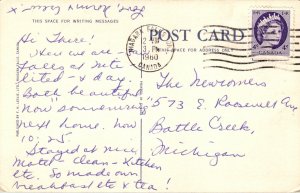 THIS SPACE FOR WRITING MESSAGES
Hi There!
Here we are –
Falls at nite
lited – & day.
Both beautiful
now "souveniring"
next home, now
10:25.
Stayed at nice
Motel – clean – Kitchen
etc. So made own
breakfast etc & tea!
POST CARD
THIS SPACE FOR ADDRESS ONLY
3 PM
1960
CANADA
The Newcomers
573 E. Roosevelt Ave
Battle Creek,
Michigan